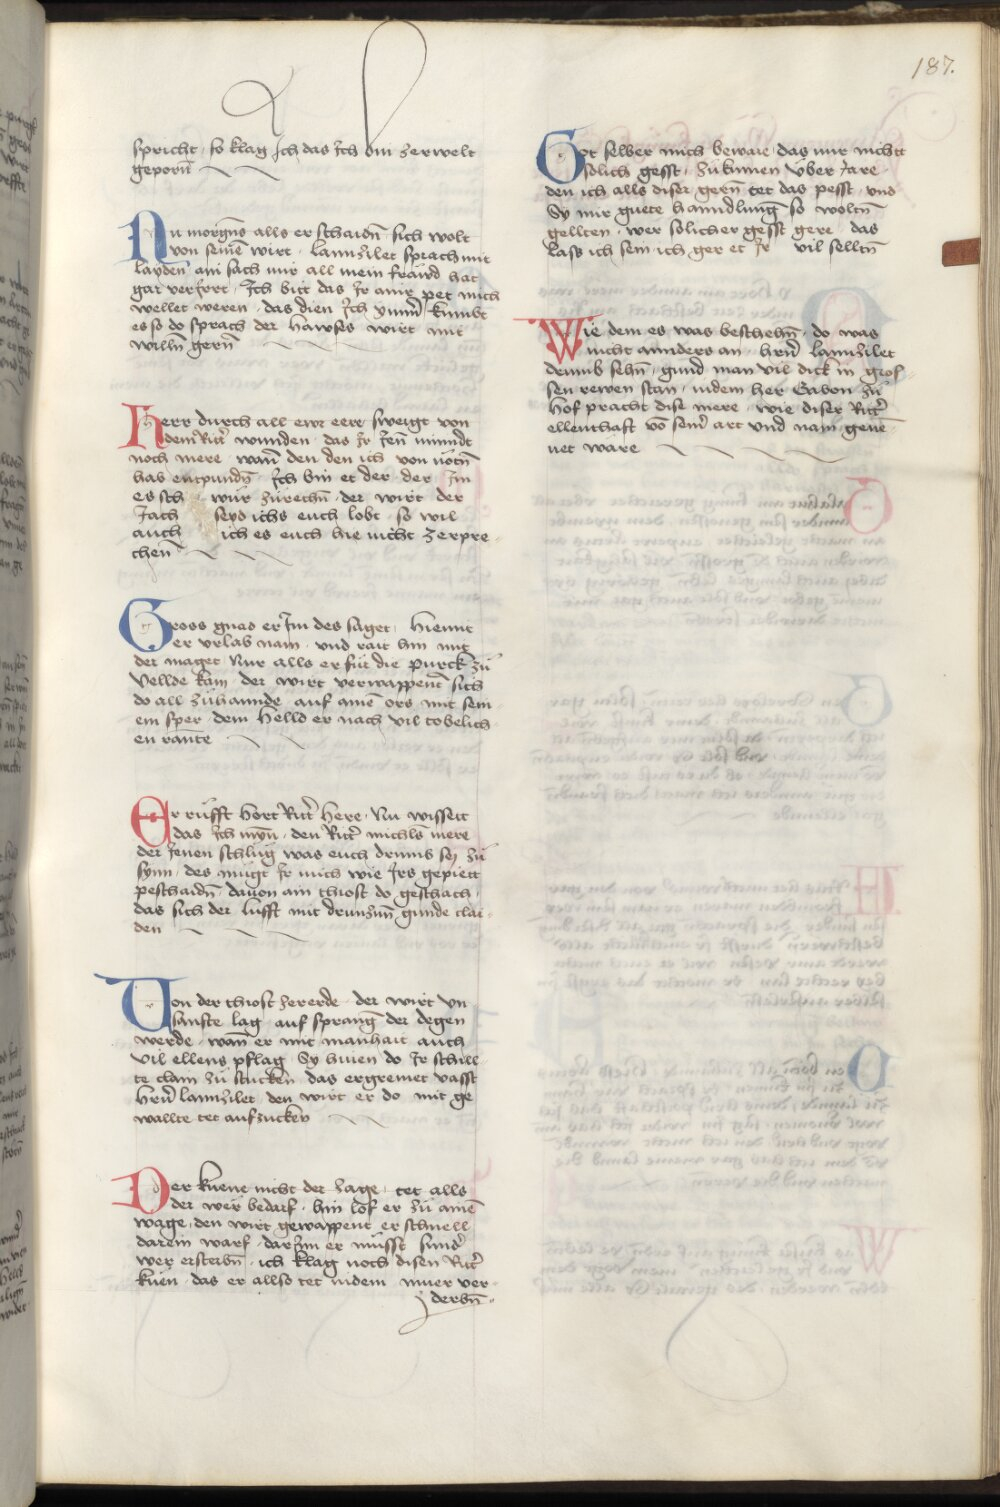 187.
spricht · so klag Ich das Ich bin zer welt
geporn̄
Nu morgn̄s alls er schaidn̄ sich wolt
von seinē wirt · lannzilet sprach mit
layden ain sach mir all mein frawd hat
gar verzert · Ich bitt das Ir mir pet mich
wellet weren · das dien Ich ymm̄ kumbt
es so do sprach der hawses wirt mit
willn̄ gern̄
Herr durch all ewr eere sweigt von
dem Ritt̄ wunden · das Ir Jen nimndt
noch mere · wan̄ den den ich von nötn̄
has entpundn̄ · Ich bin et der · der Im
es sch wur zurechn̄ · der wirt der
Jach seyd ichs euch lobt · so wil
auch ich es euch hie nicht zerpre
chen̄
Gross gnad er Im des saget · hiemit
er vrlab nam · vnd rait hin mit
der maget Nur alls er für die purck zu
Vellde kam · der wirt verwappent sich
do all zuhannde · auf ainē ors mit sein
em sper · dem helld er nach vil tobelich
en rannte
Er rüfft hört Ritt̄ here · Nu wisseit
das Ich myn̄ · den Ritt̄ michls mere
der Jenen schlug was euch drumb sey zu
synn · des mügt Ir mich wie Irs gepiett
peschaidn̄ dauon ain thiost do geschach ·
das sich der lufft mit drunzun̄ gunde clai
den
Von der thiost zererde · der wirt vn
sanfte lag · auf sprang der degen
werde · wan̄ er mit manhait auch
vil ellens pflag · Sy hiuen do Ir schill
te clain zu stucken · das ergremet vasst
hern̄ lannzilet · den wirt er do mit ge
wallte tet aufzucken
Der kuene nicht der zage · tet alls
der wer bedarf · hin lof er zu ainē
wage · den wirt gewappent er schnell
darein warf · dar Inn er müsst sund̄
wer ersterbn̄ · ich klag noch disen Ritt̄
kuen · das er allso tet indem miier ver
derbn̄
Got selber mich beware · das mir nichtt
solich gesst · zukumen vber Jare ·
den ich alls diser gern tet das pesst · vnd
Sy mir guete hanndlung so woltn̄
gellten · wer solicher gesst gere · das
lass ich sein ich ger et Ir vil selltn̄
Wie dem es was beschehn̄ · do was
nicht annders an · hern̄ lannzilet
drumb sehn̄ · gund man vil dick in gros
sen rewen stan · indem her Gabon zu
hof pracht dise mere · wie diser Ritt̄
ellenthaft vō sein̄ art vnd nam · genē
net ware